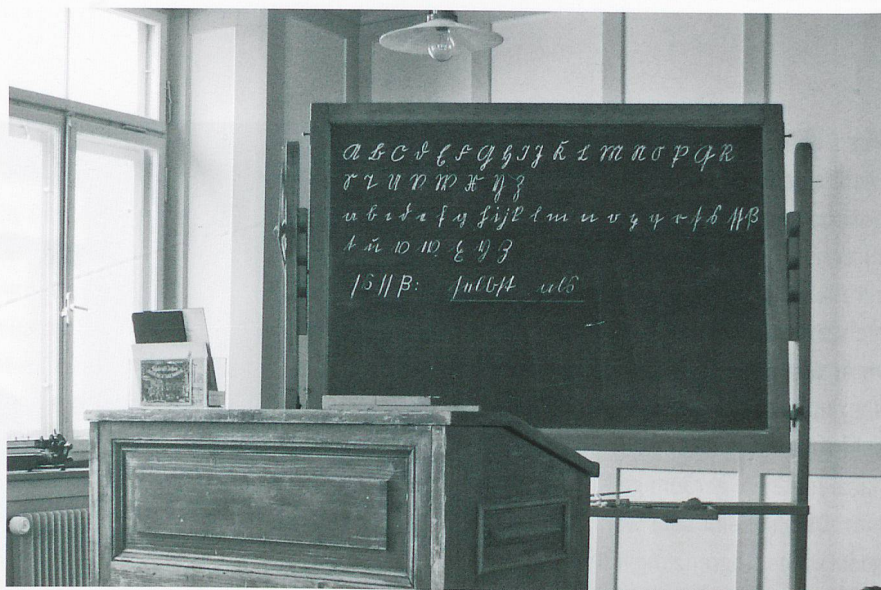 A B C D E F G H I J K L M N O P Q R
S T U V W X Y Z
a b c d e f g h i j k l m n o p q r ſ s ſſ ß
t u v w x y z
ſ s ſſ ß: ſelbſt als